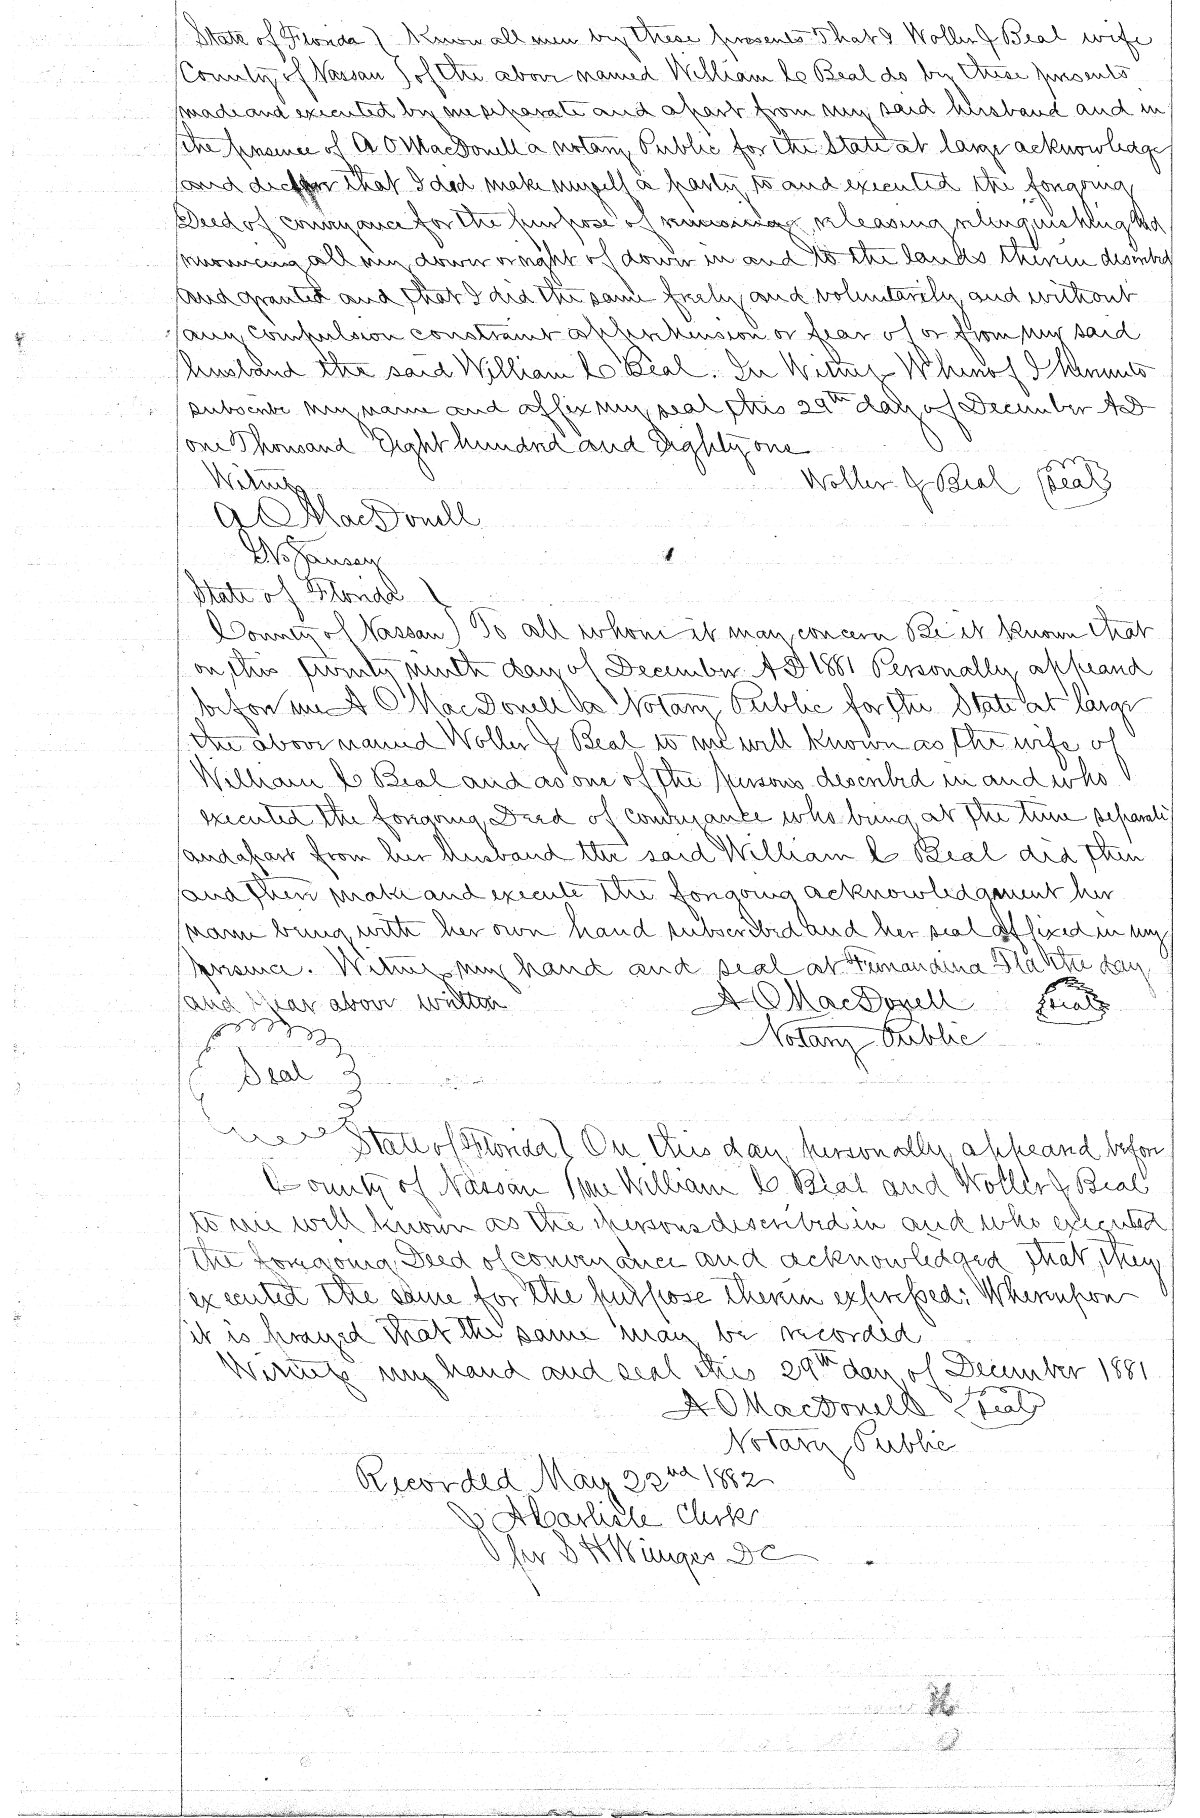 State of Florida } Know all men by these presents That I Woller J Beal wife
County of Nassau } of the above named William C Beal do by these presents
made and executed by me separate and apart from my said husband and in
the presence of A O MacDonell a notary Public for the State at large acknowledge
and declare that I did make myself a party to and executed the foregoing
Deed of conveyance for the purpose of releasing relinquishing and
renouncing all my dower or right of dower in and to the lands therein described
and granted and that I did the same freely and voluntarily and without
any compulsion constraint apprehension or fear of or from my said
husband the said William C Beal. In Witness Whereof I hereunto
subscribe my name and affix my seal this 29th day of December AD
one Thousand Eight hundred and Eighty one
Witness Woller J Beal (seal)
A O MacDonell
State of Florida }
County of Nassau } To all whom it may concern Be it Known that
on this twenty ninth day of December AD 1881 Personally appeared
before me A O MacDonell a Notary Public for the State at large
the above named Woller J Beal to me well known as the wife of
William C Beal and as one of the persons described in and who
executed the foregoing Deed of conveyance who being at the time separate
and apart from her husband the said William C Beal did then
and there make and execute the foregoing acknowledgment her
name being with her own hand subscribed and her seal affixed in my
presence. Witness my hand and seal at Fernandina Fla the day
and year above written A O MacDonell (seal)
Notary Public
Seal
State of Florida } On this day personally appeared before
County of Nassau } me William C Beal and Woller J Beal
to me well known as the persons described in and who executed
the foregoing Deed of conveyance and acknowledged that they
executed the same for the purpose therein expressed; Whereupon
it is prayed that the same may be recorded
Witness my hand and seal this 29th day of December 1881
A O MacDonell (seal)
Notary Public
Recorded May 22nd 1882
J A Carlisle Clerk
per S H DC